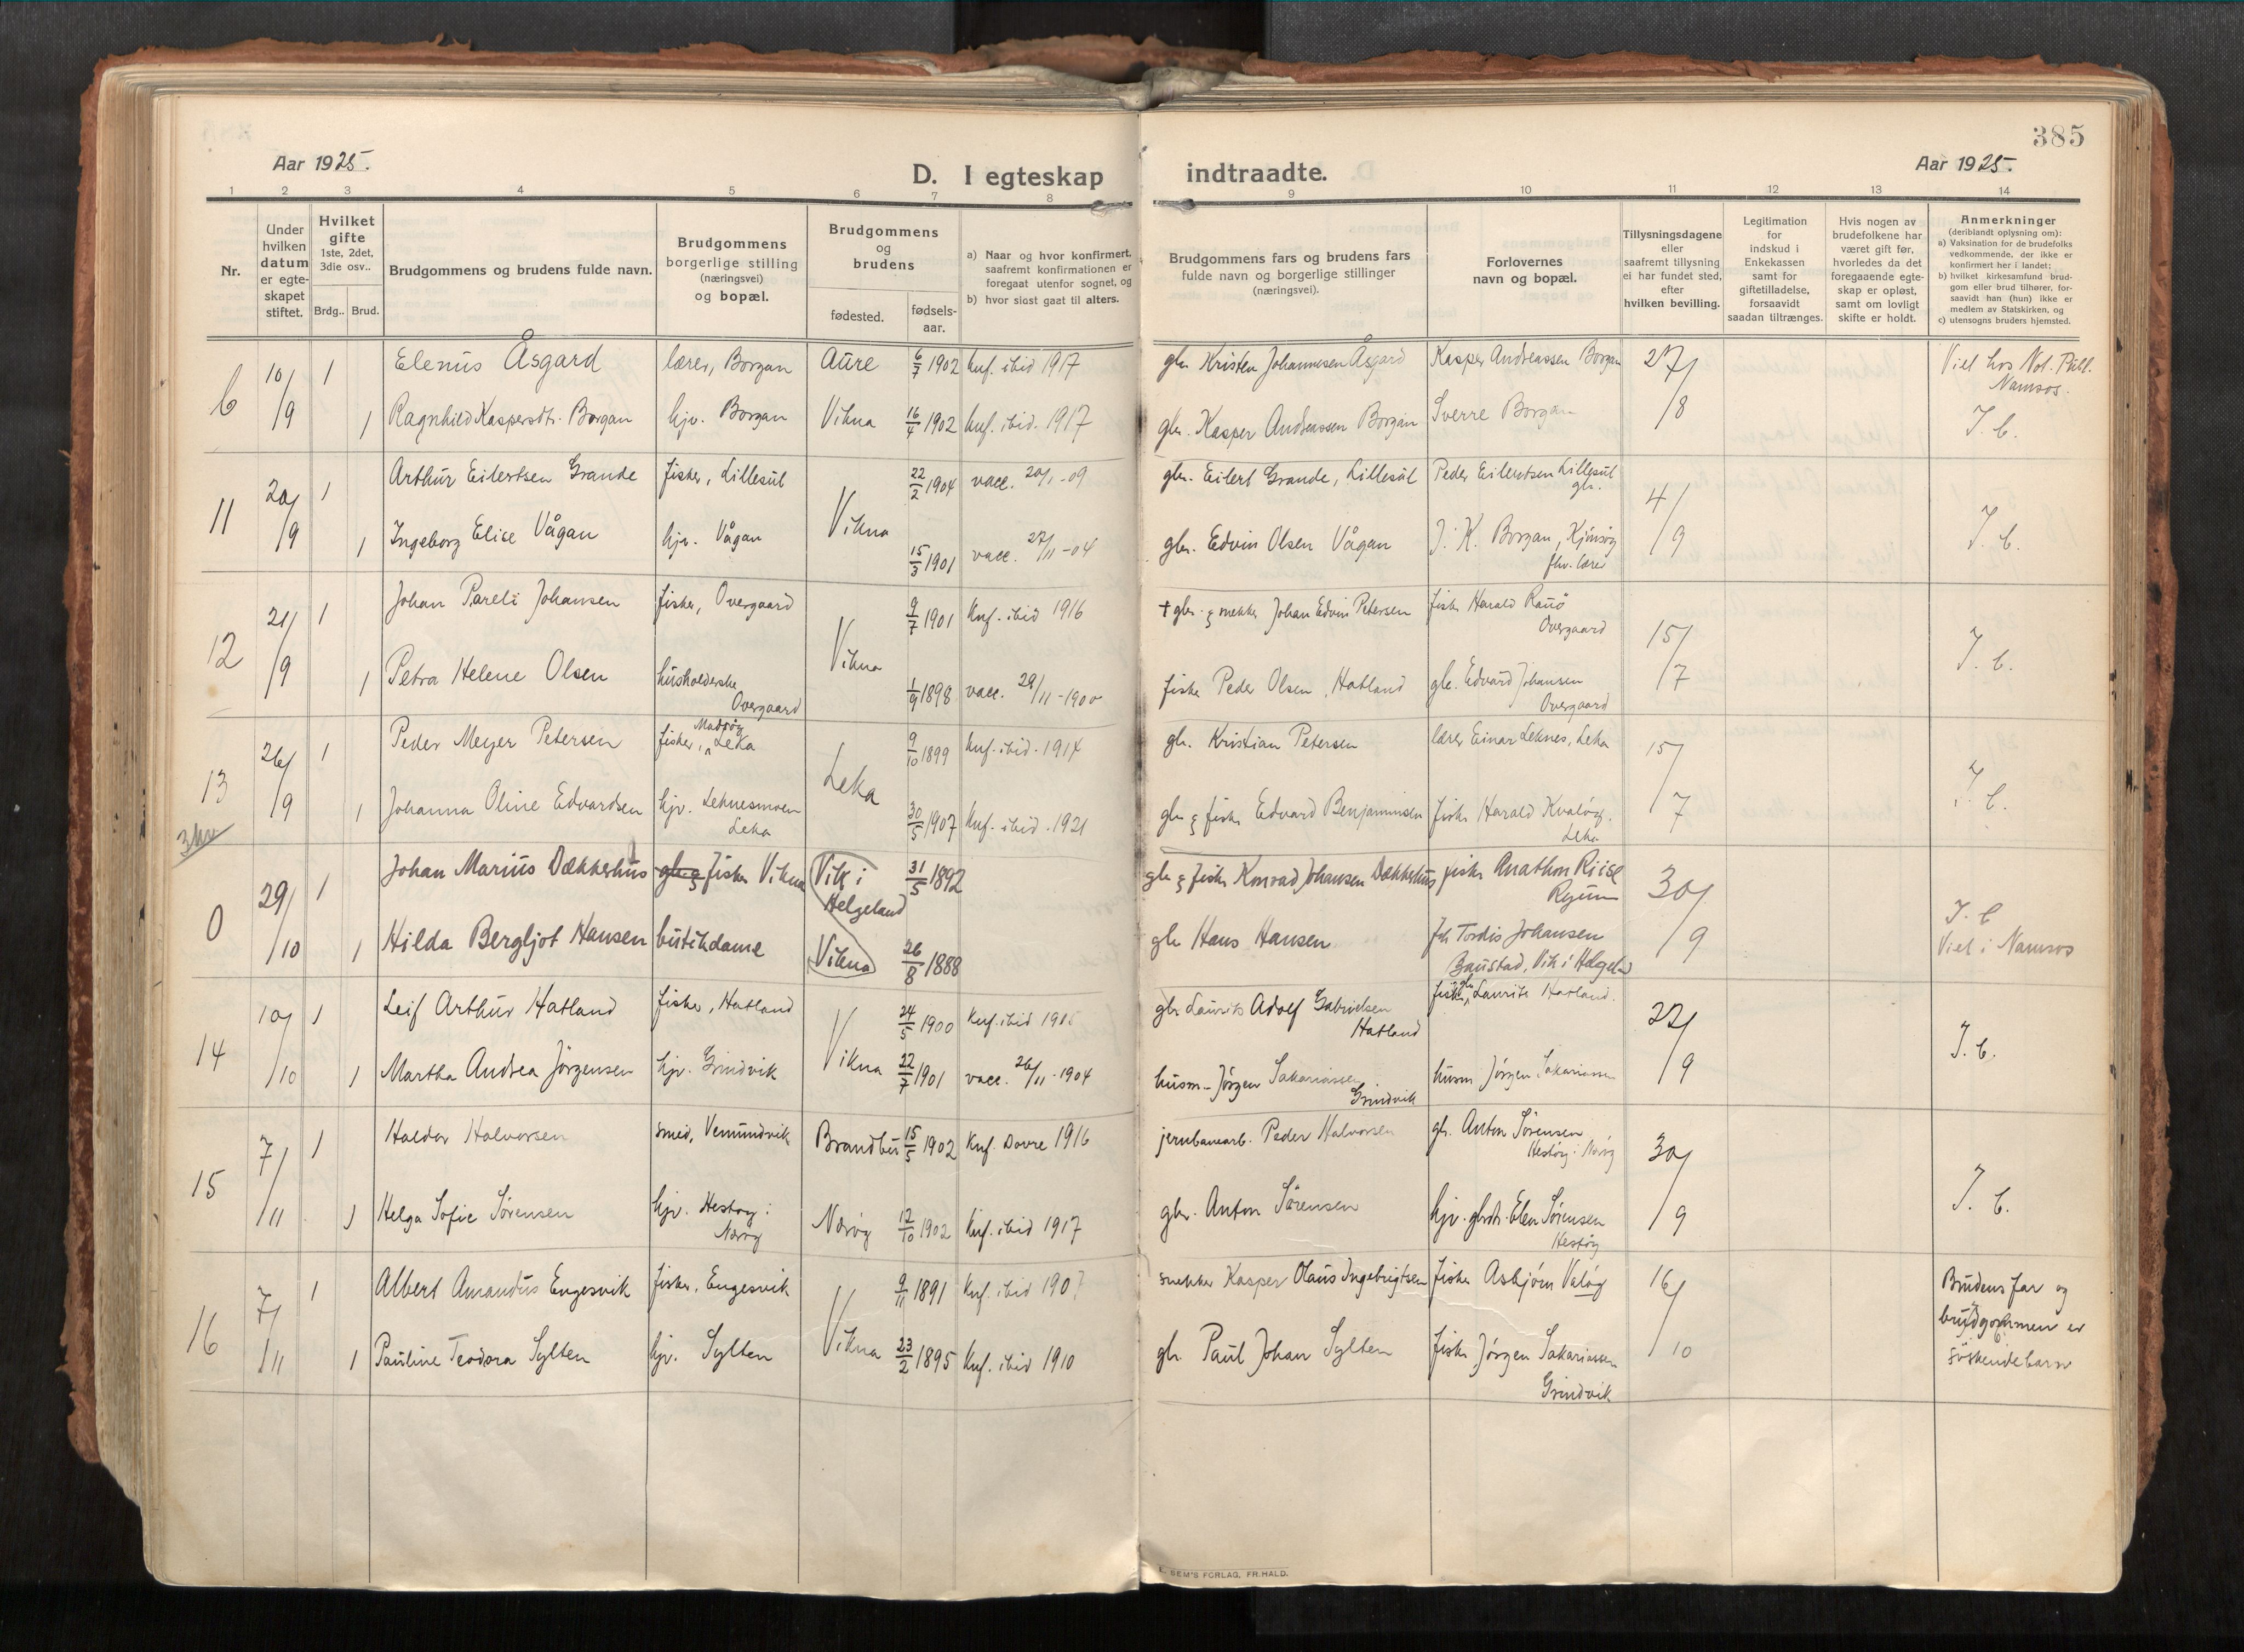 385
Aar 1925.
D. I egteskap indtraadte.
Aar 1925.
1 2 3 4 5 6 7 8 9 10 11 12 13 14
Nr.
Under hvilken datum er egte-skapet stiftet.
Hvilket gifte 1ste, 2det, 3die osv..
Brdg.. Brud.
Brudgommens og brudens fulde navn.
Brudgommens borgerlige stilling (næringsvei) og bopæl.
Brudgommens og brudens
fødested. fødsels-aar.
a) Naar og hvor konfirmert, saafremt konfirmationen er foregaat utenfor sognet, og
b) hvor sidst gaat til alters.
Brudgommens fars og brudens fars fulde navn og borgerlige stillinger (næringsvei).
Forlovernes navn og bopæl.
Tillysningsdagene eller saafremt tillysning ei har fundet sted, efter hvilken bevilling.
Legitimation for indskud i Enkekassen samt for giftetilladelse, forsaavidt saadan tiltrænges.
Hvis nogen av brudefolkene har været gift før, hvorledes da det foregaaende egte-skap er opløst, samt om lovligt skifte er holdt.
Anmerkninger (deriblandt oplysning om):
a) Vaksination for de brudefolks vedkommende, der ikke er konfirmert her i landet;
b) hvilket kirkesamfund brud-gom eller brud tilhører, for-saavidt han (hun) ikke er medlem av Statskirken, og
c) utensogns bruders hjemsted.
6 10/9 1 Elenus Åsgard lærer, Borgan Aure 6/7 1902 Knf. ibid 1917 gbr. Kristen Johannesen Åsgard Kasper Andreassen Borgan 27/8 Viet hos Not. Publ.
Namsos.
1 Ragnhild Kaspersdtr. Borgan hjv. Borgan Vikna 16/4 1902 Knf. ibid. 1917 gbr. Kasper Andreassen Borgan Sverre Borgan J. C.
11 20/9 1 Arthur Eilertsen Grande fisker, Lillesul Vikna 22/2 1904 vacc. 20/1 -09 gbr. Eilert Grande, Lillesul Peder Eilertsen Lillesul
gbr. 4/9
1 Ingeborg Elise Vågan hjv. Vågan 15/3 1901 vacc. 27/11 -04 gbr. Edvin Olsen Vågan J. K. Borgan, J. C.
fhv. lærer
12 21/9 1 Johan Pareli Johansen fisker, Overgaard Vikna 9/7 1901 Knf. ibid 1916 † gbr. & snekker Johan Edvin Petersen fisker Harald Rauø
Overgaard 15/7
1 Petra Helene Olsen husholderske
Overgaard 1/9 1898 vacc. 29/11 -1900 fisker Peder Olsen, Hatland gbr. Edvard Johansen
Overgaard J. C.
13 26/9 1 Peder Meyer Petersen fisker, Madsøy Leka Leka 9/10 1899 Knf. ibid. 1914 gbr. Kristian Petersen lærer Einar Leknes, Leka 15/7
1 Johanna Oline Edvardsen hjv. Leknesmoen
Leka 30/5 1907 Knf. ibid. 1921 gbr. & fisker Edvard Benjaminsen fisker Harald Kvaløy.
Leka J. C.
0 29/10 1 Johan Marius Dækkerhus gbr. & fisker Vikna Vik i
Helgeland 31/5 1892 gbr. & fisker Konrad Johansen Dækkerhus fisker Anathon Riise
30/9
1 Hilda Bergljot Hansen butikdame Vikna 26/8 1888 gbr Hans Hansen Frk Tordis Johansen
Baustad, Vik i Helgeland J. C
Viet i Namsos
14 10/10 1 Leif Arthur Hatland fisker, Hatland Vikna 24/5 1900 Knf. ibid gbr. Laurits Adolf Gabrielsen
Hatland fisker & gbr. Laurits Hatland. 27/9
1 Martha Andrea Jörgensen hjv. Grindvik 22/7 1901 vacc. 26/11 -1904 husm. Jörgen Sakariassen
Grindvik husm Jörgen Sakariassen J. C.
15 7/11 1 Haldor Halvorsen smed, Vemundvik Brandbu 15/5 1902 Knf. Dovre 1916 jernbanearb. Peder Halvorsen gbr. Anton Sörensen
Hestøy i Nærøy 30/9
1 Helga Sofie Sörensen hjv. Hestøy i
Nærøy Nærøy 12/10 1902 Knf. ibid 1917 gbr. Anton Sörensen hjv. gbrdtr. Elen Sörensen
Hestøy J. C.
16 7/11 1 Albert Amandus Engesvik fisker, Engesvik Vikna 9/11 1891 Knf. ibid 1907 snekker Kasper Olaus Ingebrigtsen fisker Asbjörn Valöy 16/10 Brudens far og
brudgommen er
söskendebarn
1 Pauline Teodora Sylten hjv. Sylten 23/2 1895 Knf. ibid 1910 gbr. Paul Johan Sylten fisker Jörgen Sakariassen
Grindvik
SEM'S FORLAG, FR.HALD.